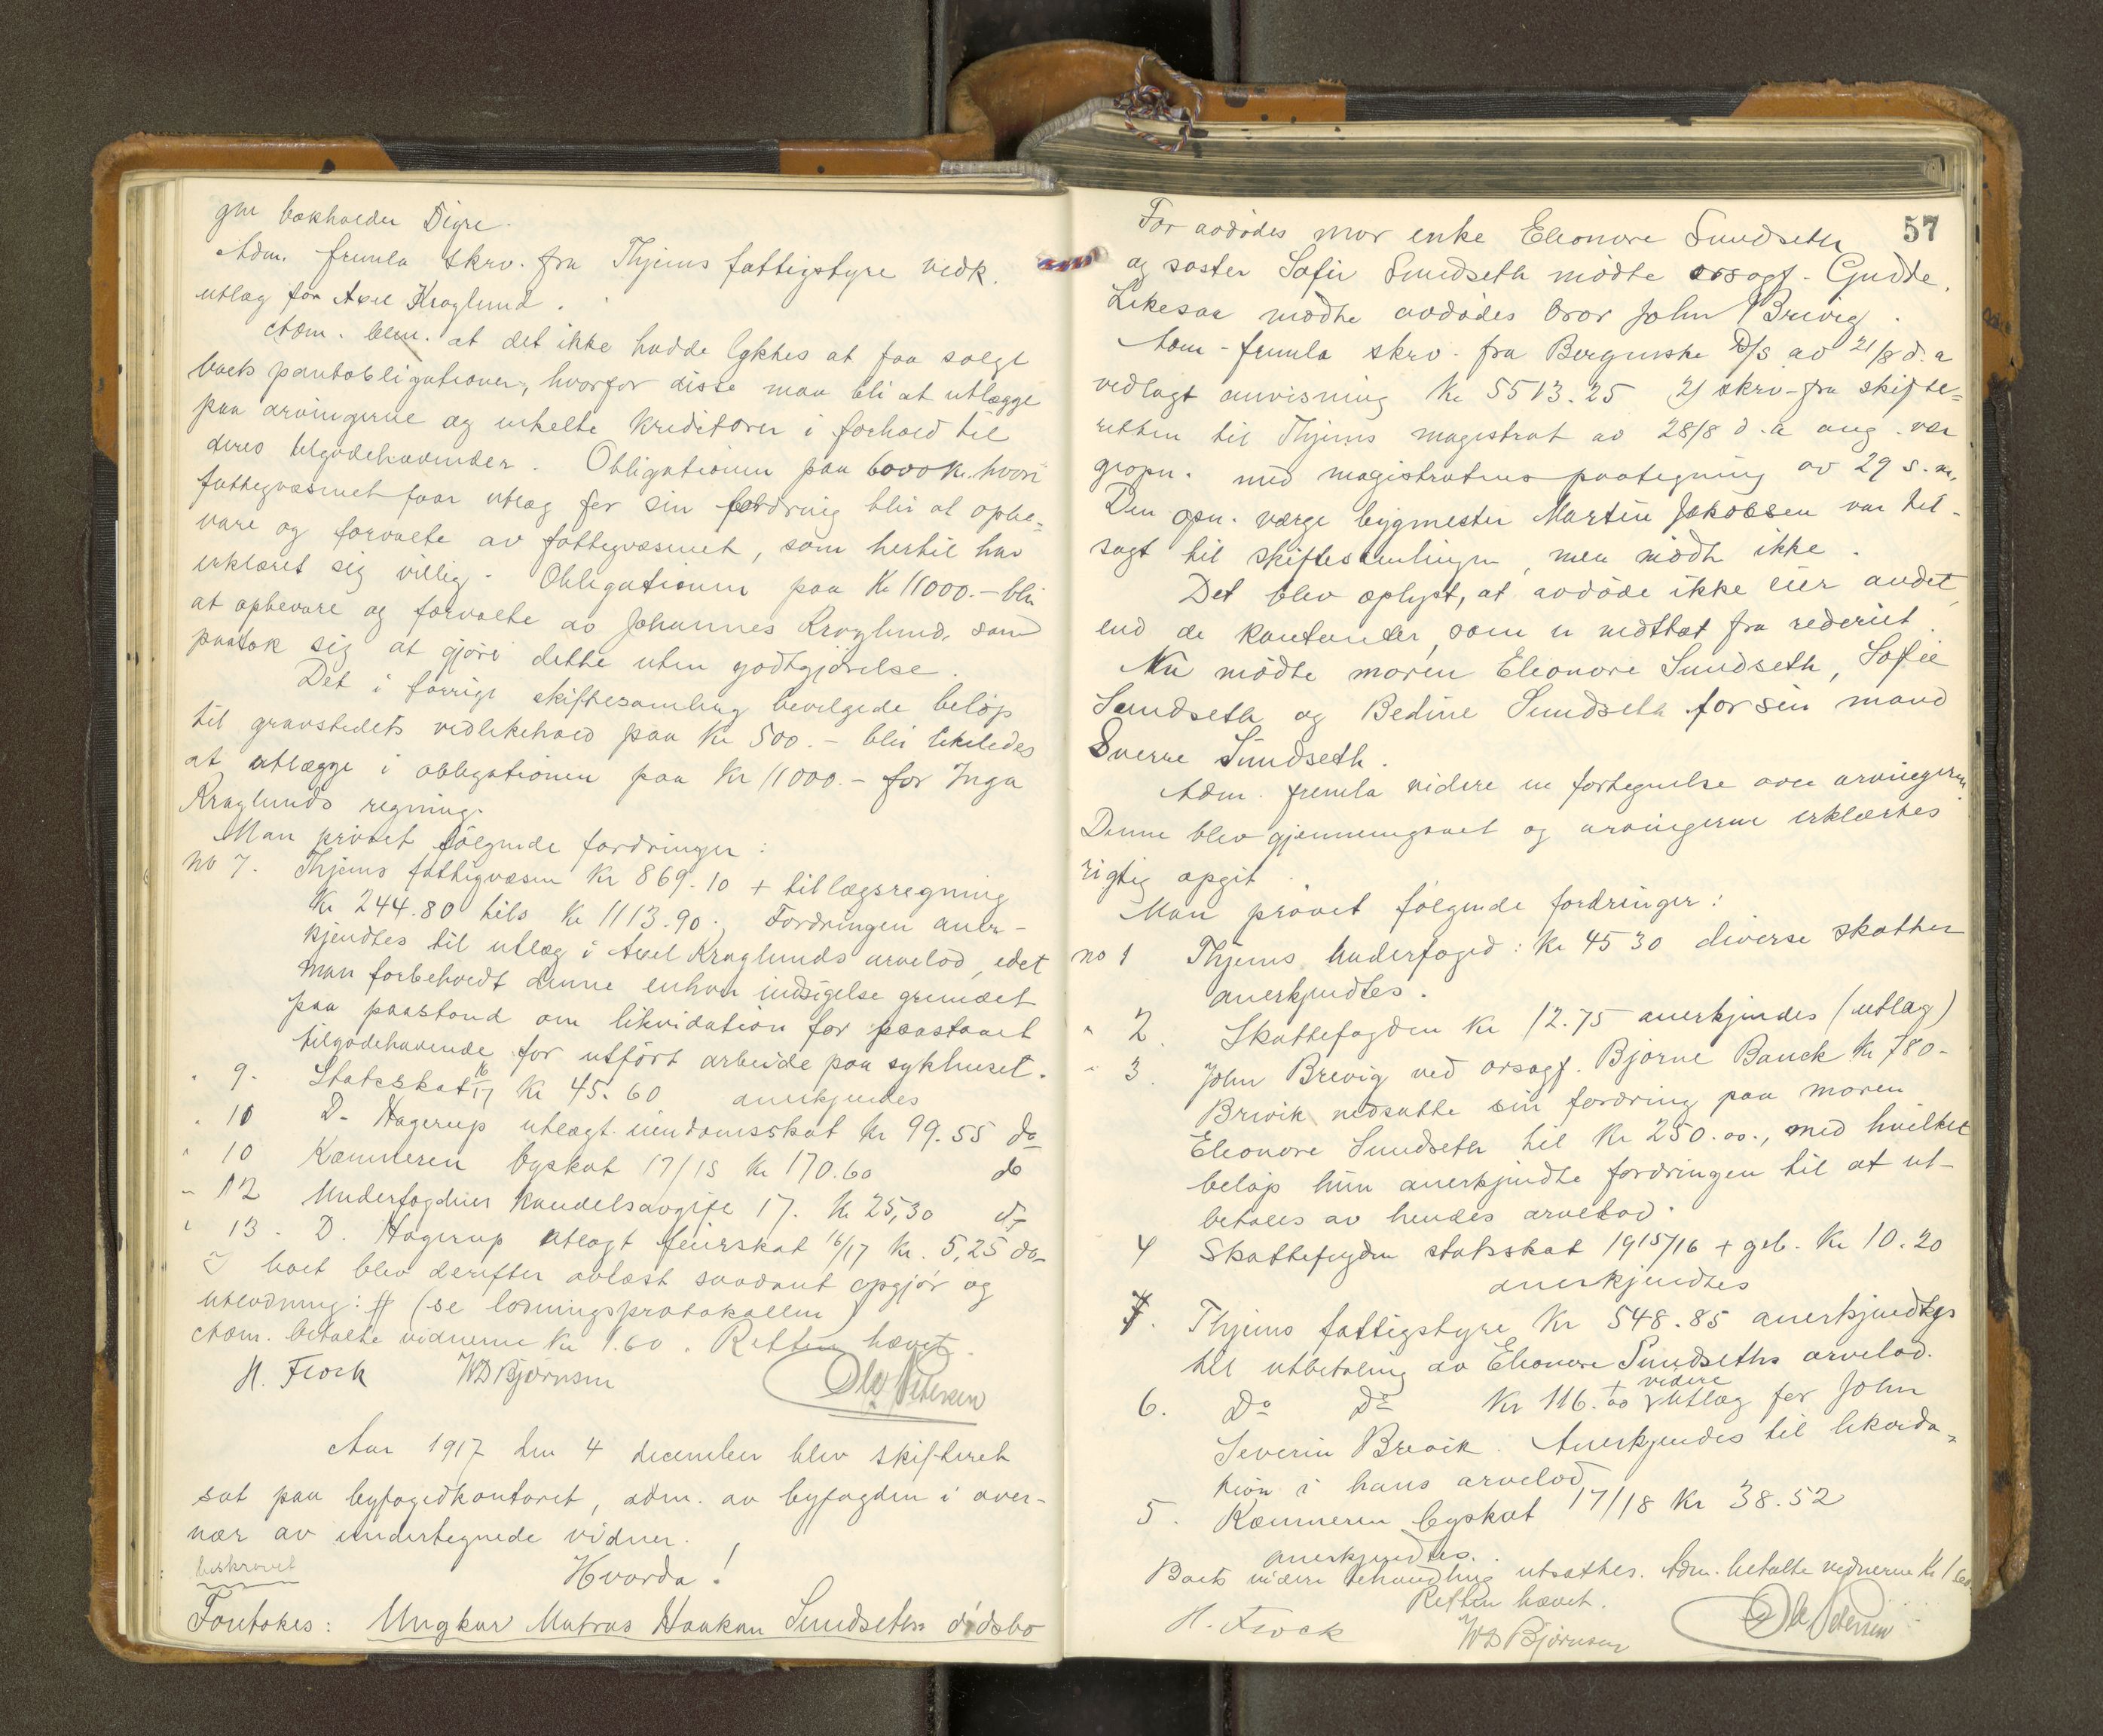 gm bokholder Digre.
Adm. fremla skrv. fra Thjems fattigstyre vedk.
utlæg for Axel Kroglund.
Adm. bem. at det ikke hadde lyktes at faa solgt
boets pantobligationer, hvorfor disse maa bli at utlægge
paa arvingerne og enkelte kreditorer i forhold til
deres tilgodehavender. Obligationen paa 6000 kr. hvori
fattigvæsenet faar utlæg for sin fordring blir at opbe-
vare og forvalte av fattigvæsenet, som hertil har
erklæret sig villig. Obligationen paa Kr 11000.- blir
at opbevare og forvalte av Johannes Kroglund, som
paatok sig at gjøre dette uten godtgjørelse.
Det i forrige skiftesamling bevilgede beløp
til gravstedets vedlikehold paa Kr 500.- blir likeledes
at utlægge i obligationen paa Kr 11000.- for Inga
Kroglunds regning.
Man prøvet følgende fordringer:
no 7. Thjems fattigvæsen Kr 869.10 + tillægsregning
Kr 244.80 tils Kr 1113.90. Fordringen aner-
kjendtes til utlæg i Axel Kroglunds arvelod, idet
man forbeholdt denne enhver indsigelse grundet
paa paastand om likvidation for paastaaet
tilgodehavende for utført arbeide paa sykhuset.
" 9. Statsskat 16/17 Kr 45.60 anerkjendes
" 10 D. Hagerup utlagt eiendomsskat Kr 99.55 do
" 10 Kæmneren byskat 17/18 Kr 170.60 do
" 12 Underfogdens handelsavgift 17. Kr 25,30 do
" 13. D. Hagerup utlagt feierskat 16/17 Kr. 5,25 do
I boet blev derefter avlæst saadant opgjør og
utlodning: # (se lodningsprotokollen)
Adm. betalte vidnerne Kr 1.60. Retten hævet.
H. Flock WD Bjørnsen Ole Petersen
Aar 1917 den 4 december blev skifteret
sat paa byfogedkontoret, adm. av byfogden i over-
vær av undertegnede vidner.
beskrevet
Hvorda!
Foretokes: Ungkar Matros Haakon Sundseths dødsbo
57
For avdødes mor enke Eleonore Sundseth
og søster Sofie Sundseth mødte orsagf. Gudde.
Likesaa mødte avdødes bror John Brevig.
Adm. fremla skrv. fra Bergenske D/S av 21/8 d.a
vedlagt anvisning Kr 5513.25 2) skrv. fra skifte-
retten til Thjems magistrat av 28/8 d.a ang. vær
geopn. med magistratens paategning av 29 s.m.
Den opn. værge bygmester Martin Jakobsen var til-
sagt til skiftesamlingen, men mødte ikke.
Det blev oplyst, at avdøde ikke eier andet,
end de kontanter, som er mottat fra rederiet.
Nu mødte moren Eleonore Sundseth, Sofie
Sundseth og Bedine Sundseth for sin mand
Sverre Sundseth.
Adm. fremla videre en fortegnelse over arvingerne.
Denne blev gjennemgaaet og arvingerne erklærtes
rigtig opgit.
Man prøvet følgende fordringer:
no 1 Thjems underfoged: Kr 45 30 diverse skatter
anerkjendtes.
" 2. Skattefogden Kr 12.75 anerkjendes (utlæg)
" 3. John Brevig ved orsagf. Bjarne Banck Kr 780-
Brevik nedsatte sin fordring paa moren
Eleonore Sundseth til Kr 250.00., med hvilket
beløp hun anerkjendte fordringen til at ut-
betales av hendes arvelod.
4 Skattefogden statsskat 1915/16 + geb. Kr 10.20
anerkjendtes
7. Thjems fattigstyre Kr 548.85 anerkjendtes
til utbetaling av Eleonore Sundseths arvelod.
6. Do Do Kr 116.00 + videre utlæg for John
Severin Brevik. Anerkjendes til likvida-
tion i hans arvelod
5. Kæmneren byskat 17/18 Kr 38.52
anerkjendtes.
Boets videre behandling utsattes. Adm. betalte vidnerne Kr 1.60.
Retten hævet.
H. Flock WD Bjørnsen Ole Petersen